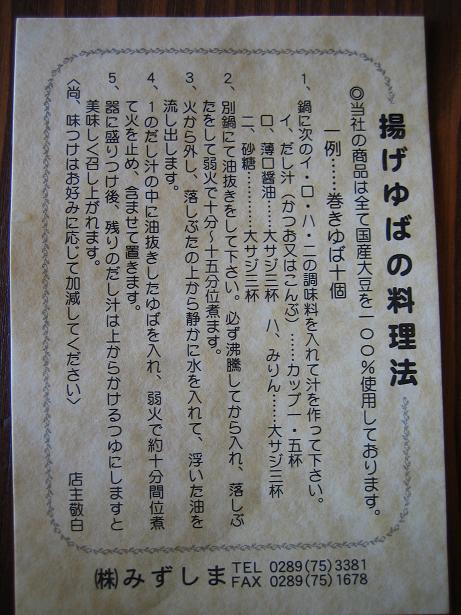 揚げゆばの料理法
◎当社の商品は全て国産大豆を一〇〇％使用しております。
一例……巻きゆば十個
1、鍋に次のイ・ロ・ハ・ニの調味料を入れて汁を作って下さい。
イ、だし汁（かつお又はこんぶ）……カップ一・五杯
ロ、薄口醤油……大サジ三杯　ハ、みりん……大サジ三杯
ニ、砂糖…………大サジ三杯
2、別鍋にて油抜きをして下さい。必ず沸騰してから入れ、落しぶ
たをして弱火で十分〜十五分位煮ます。
3、火から外し、落しぶたの上から静かに水を入れて、浮いた油を
流し出します。
4、1のだし汁の中に油抜きしたゆばを入れ、弱火で約十分間位煮
て火を止め、含ませて置きます。
5、器に盛りつけ後、残りのだし汁は上からかけるつゆにしますと
美味しく召し上がれます。
〈尚、味つけはお好みに応じて加減してください〉
店主敬白
㈱みずしま
TEL 0289(75)3381
FAX 0289(75)1678